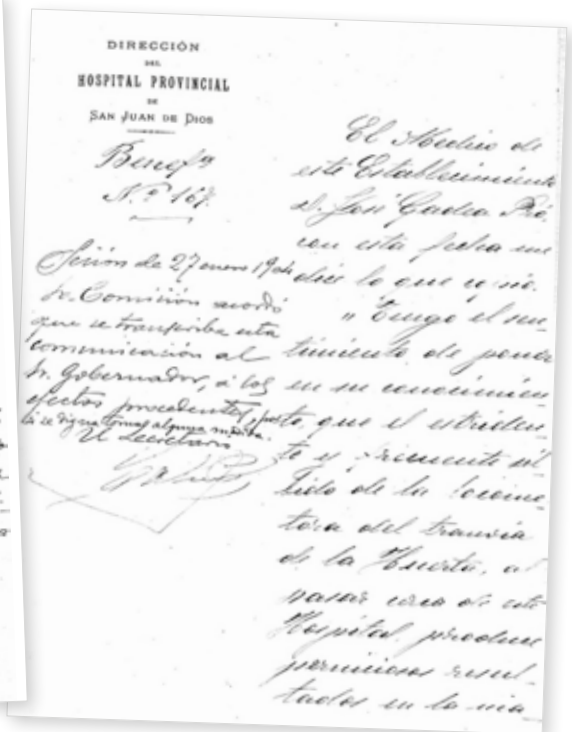 DIRECCIÓN
DEL
HOSPITAL PROVINCIAL
DE
SAN JUAN DE DIOS
Benefª
N.º 167.
Sesión de 27 enero 1904
La Comisión acordó
que se transcriba esta
comunicación al
Sr. Gobernador, á los
efectos procedentes, por
si se digna tomar alguna medida.
El Secretario
El Medico de
este Establecimiento
D. José Gadea Pró.
con esta fecha me
dice lo que copio.
"Tengo el sen-
timiento de poner
en su conocimien
to que el estriden-
te y frecuente sil
bido de la locomo-
tora del tranvia
de la Huerta, al
pasar cerca de este
Hospital, produce
perniciosos resul-
tados en la ma